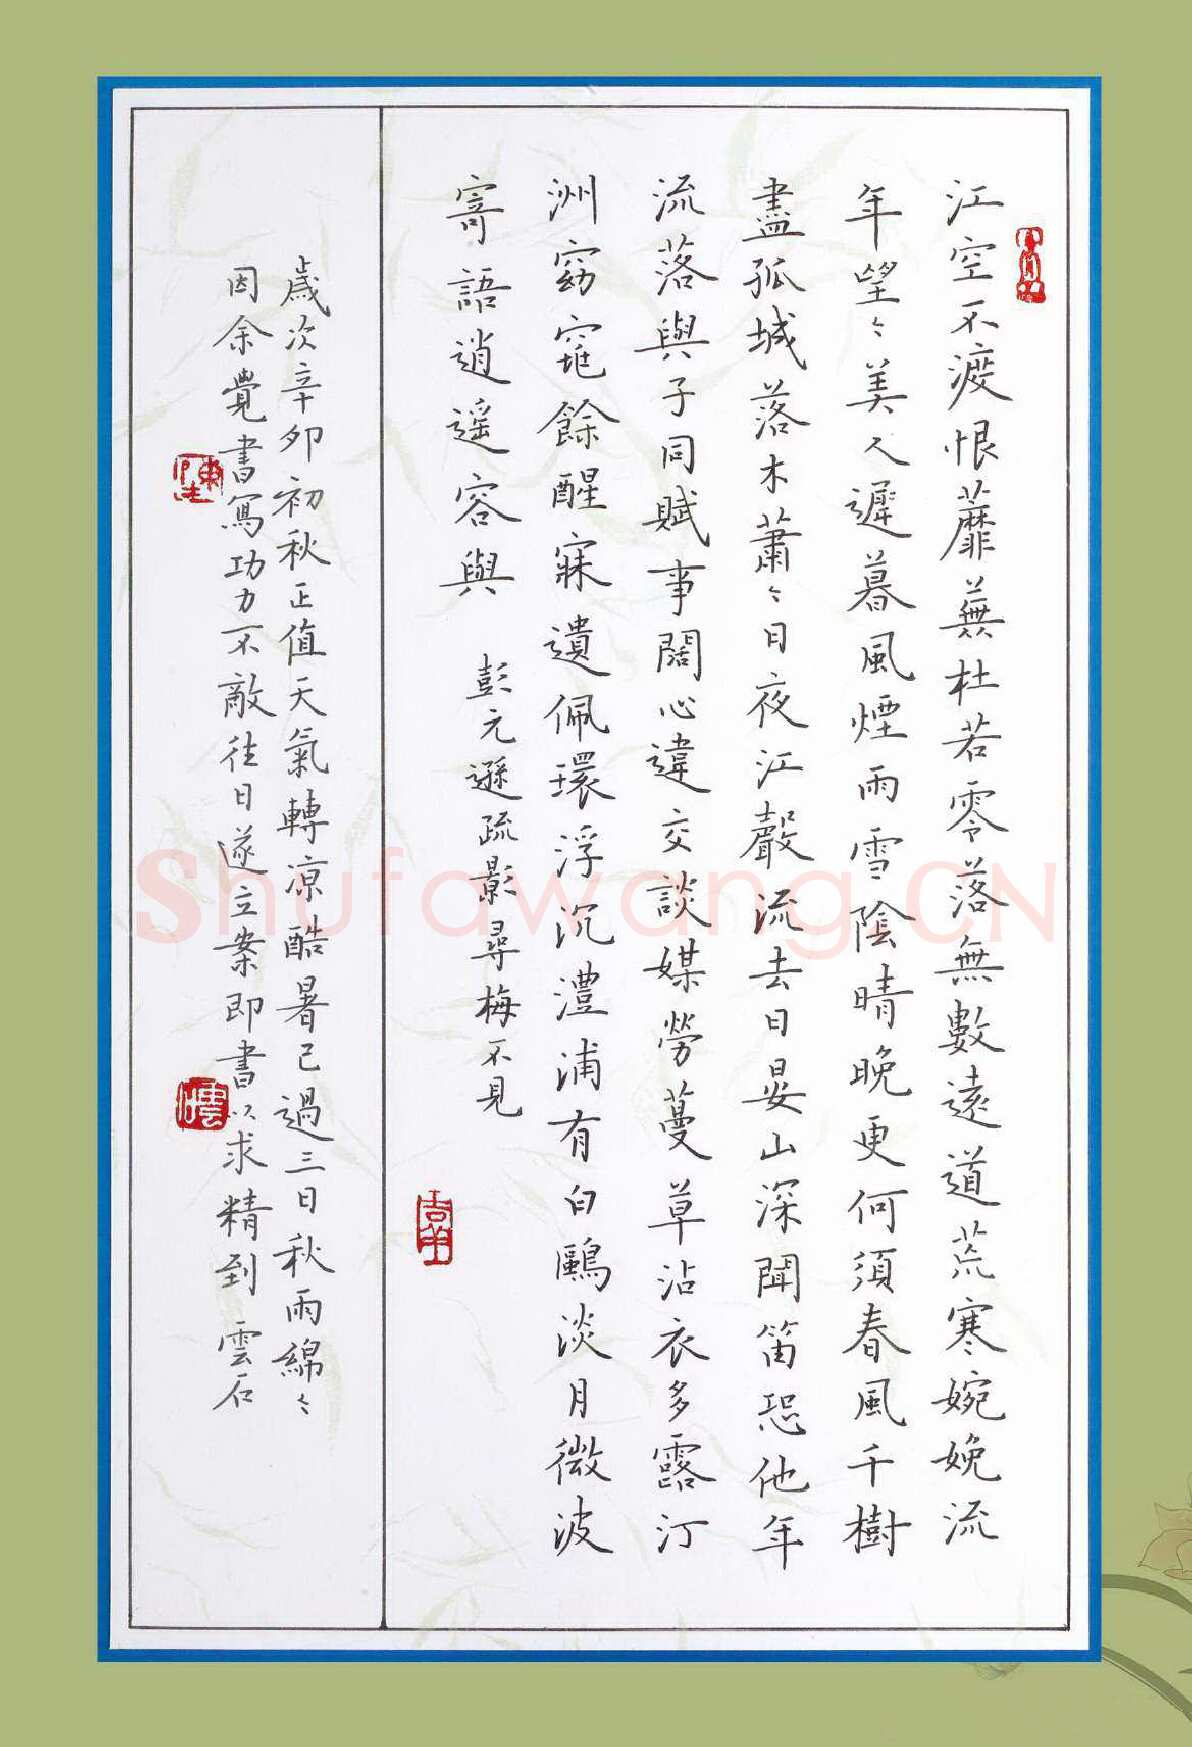 江空不渡恨蘼蕪杜若零落無數遠道荒寒婉娩流
年望々美人遲暮風煙雨雪陰晴晚更何須春風千樹
盡孤城落木蕭々日夜江聲流去日晏山深聞笛恐他年
流落與子同賦事闊心違交談媒勞蔓草沾衣多露汀
洲窈窕餘醒寐遺佩環浮沉澧浦有白鷗淡月微波
寄語逍遥容與 彭元遜疏影尋梅不見
歲次辛卯初秋正值天氣轉凉酷暑已過三日秋雨綿々
因余覺書寫功力不敵往日遂立案即書以求精到 雲石
Shufawang.CN